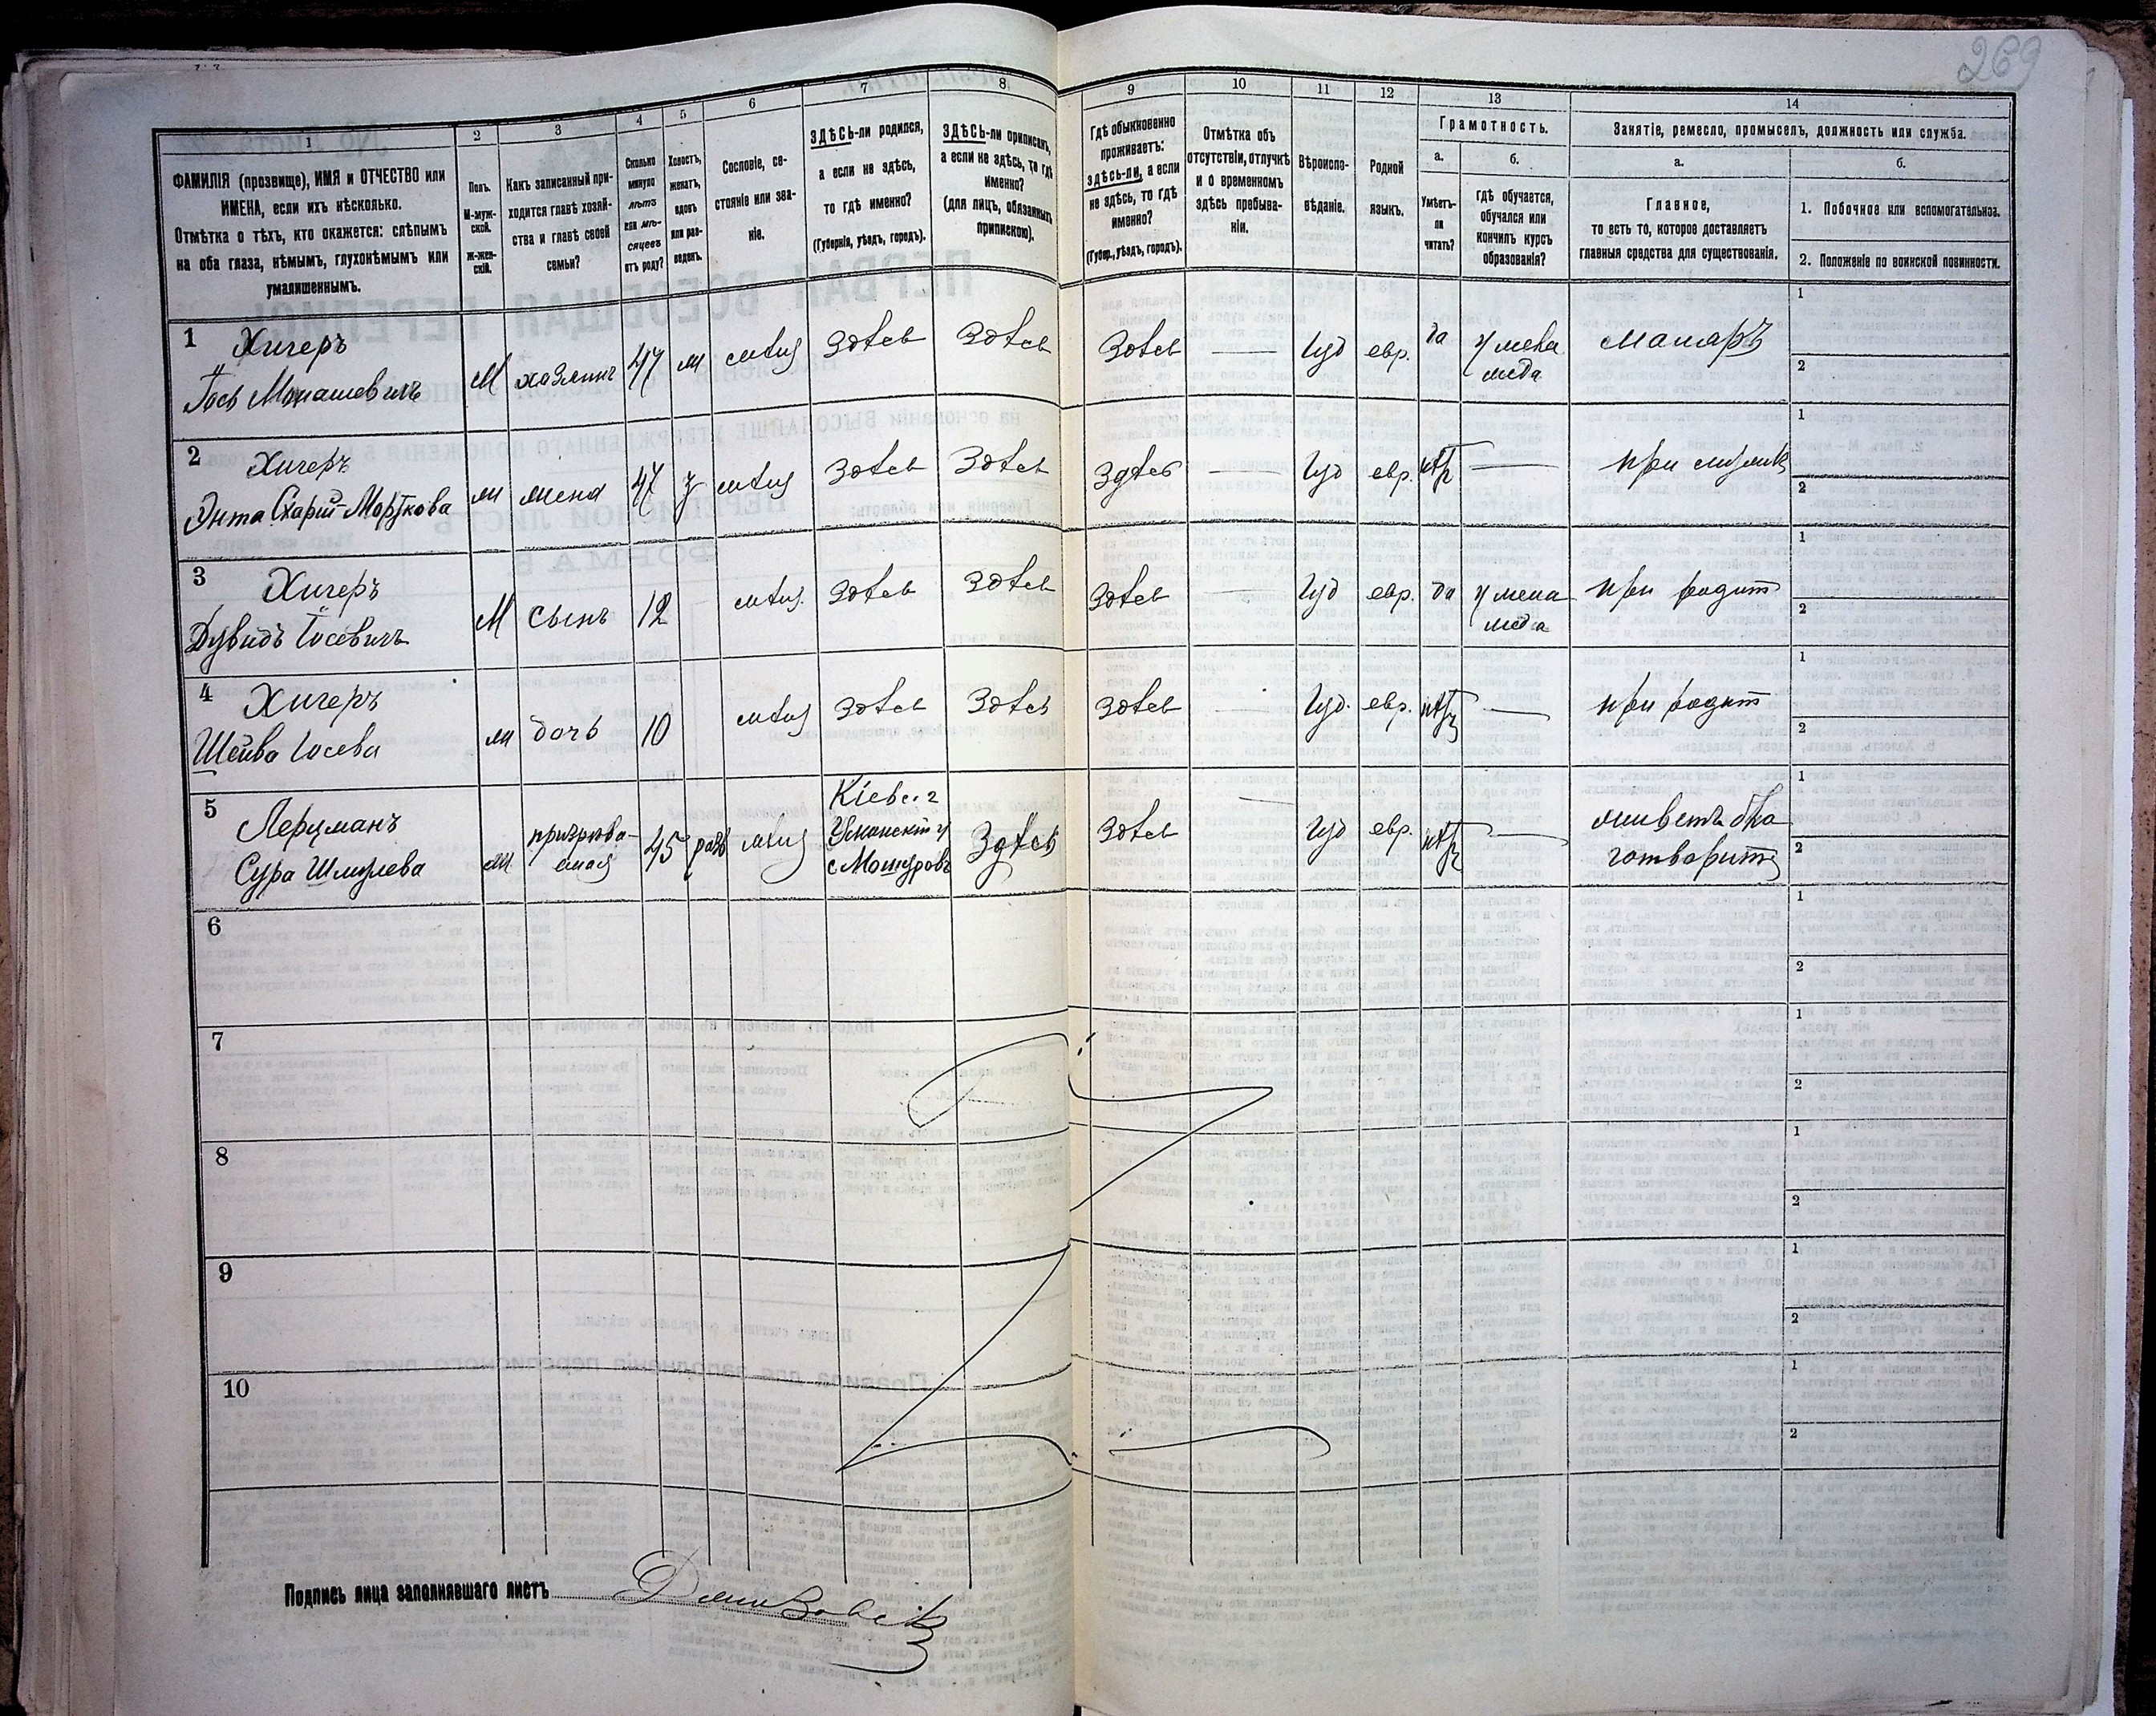 269
1
2
3
4
5
6
7
8
9
10
11
12
13
14
ФАМИЛІЯ (прозвище), ИМЯ и ОТЧЕСТВО или
ИМЕНА, если ихъ нѣсколько.
Отмѣтка о тѣхъ, кто окажется: слѣпымъ
на оба глаза, нѣмымъ, глухонѣмымъ или
умалишеннымъ.
Полъ.
М-муж-
ской.
Ж-жен-
скій.
Какъ записанный при-
ходится главѣ хозяй-
ства и главѣ своей
семьи?
Сколько
минуло
лѣтъ
или мѣ-
сяцевъ
отъ роду?
Холостъ,
женатъ,
вдовъ
или раз-
веденъ.
Сословіе, со-
стояніе или зва-
ніе.
ЗДѢСЬ-ли родился,
а если не здѣсь,
то гдѣ именно?
(Губернія, уѣздъ, городъ).
ЗДѢСЬ-ли приписанъ,
а если не здѣсь, то гдѣ
именно?
(для лицъ, обязанныхъ
припискою).
Гдѣ обыкновенно
проживаетъ:
здѣсь-ли, а если
не здѣсь, то гдѣ
именно?
(Губер., уѣздъ, городъ).
Отмѣтка объ
отсутствіи, отлучкѣ
и о временномъ
здѣсь пребыва-
ніи.
Вѣроиспо-
вѣданіе.
Родной
языкъ.
Грамотность.
а.
б.
Умѣетъ-
ли
читать?
гдѣ обучается,
обучался или
кончилъ курсъ
образованія?
Занятіе, ремесло, промыселъ, должность или служба.
а.
б.
Главное,
то есть то, которое доставляетъ
главныя средства для существованія.
1. Побочное или вспомогательное.
2. Положеніе по воинской повинности.
1 Хигеръ
Іось Монашевичъ
М хазяинъ 47 ж Здѣсь Здѣсь Здѣсь — Іуд евр. да
1
2
2 Хигеръ
Энта
ж жена 47 Здѣсь Здѣсь Здѣсь — Іуд евр. — при
1
2
3 Хигеръ
Дувидъ Іосевичъ
М сынъ 12 Здѣсь Здѣсь Здѣсь — Іуд евр. да при родит
1
2
4 Хигеръ
Шейва Іосева
ж дочь 10 Здѣсь Здѣсь Здѣсь — Іуд. евр. — при родит
1
2
5 Лерцманъ
Сура Шмулева
ж 45 Здѣсь Здѣсь — Іуд евр. —
Кіевс. г
1
2
6
1
2
7
1
2
8
1
2
9
1
2
10
1
2
Подпись лица заполнявшаго листъ